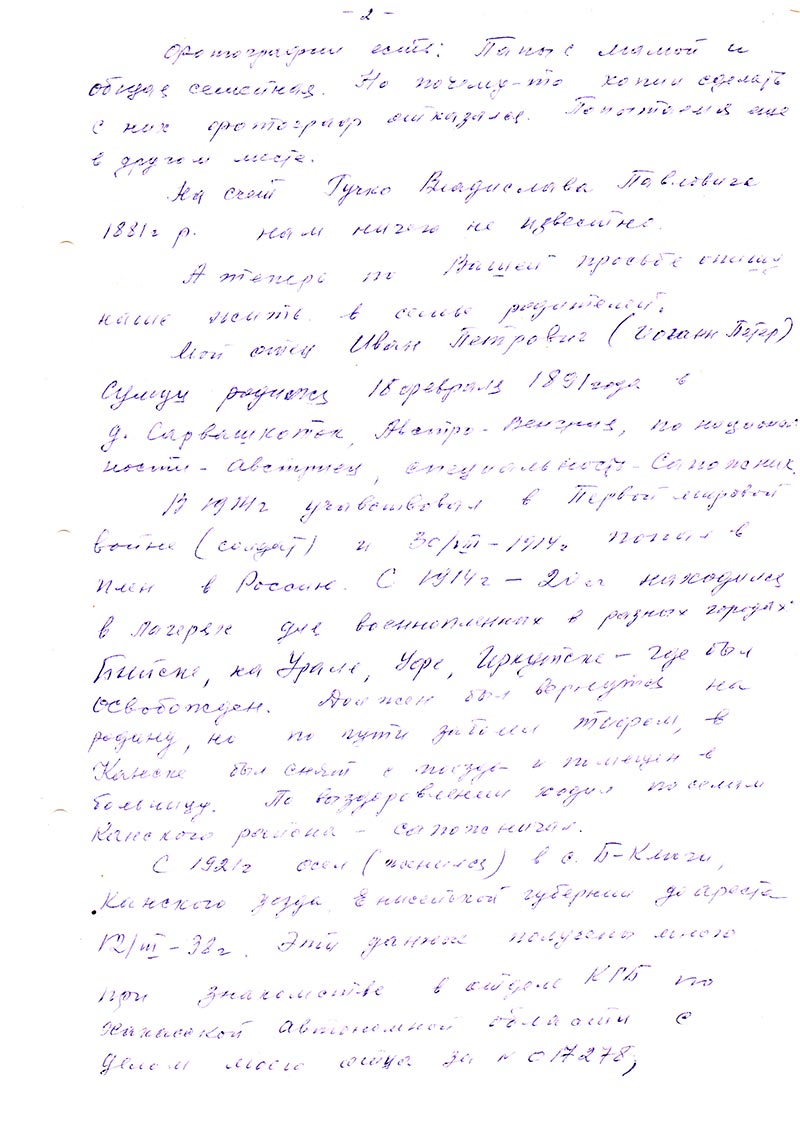 - 2 -
Фотографии есть: Папы с мамой и
общая семейная. Но почему-то копии сделать
с них фотограф отказался. Попытаемся еще
в другом месте.
На счет Гучко Владислава Павловича
1881г р. нам ничего не известно.
А теперь по Вашей просьбе опишу
наше житьё в семье родителей.
Мой отец Иван Петрович (Иоганн Петер)
родился 18 февраля 1891 года в
д. Сарвашкоток, Австро-Венгрия, по национал
ности - австриец, специальность - Сапожник.
В 1914г учавствовал в Первой мировой
войне (солдат) и 30/VIII-1914г попал в
плен в Россию. С 1914г - 20 гг находился
в лагерях для военнопленных в разных городах
Бийске, на Урале, Уфе, Иркутске - где был
освобожден. Должен был вернуться на
родину, но по пути заболел тифом, в
Канске был снят с поезда и помещен в
больницу. По выздоровлении ходил по селам
Канского района - сапожничал.
С 1921г осел (женился) в с. Б-Ключи,
Канского уезда, Енисейской губернии до ареста
12/III-38г. Эти данные получены мною
при знакомстве в отделе КГБ по
Хакасской автономной области с
делом моего отца за № 017278,